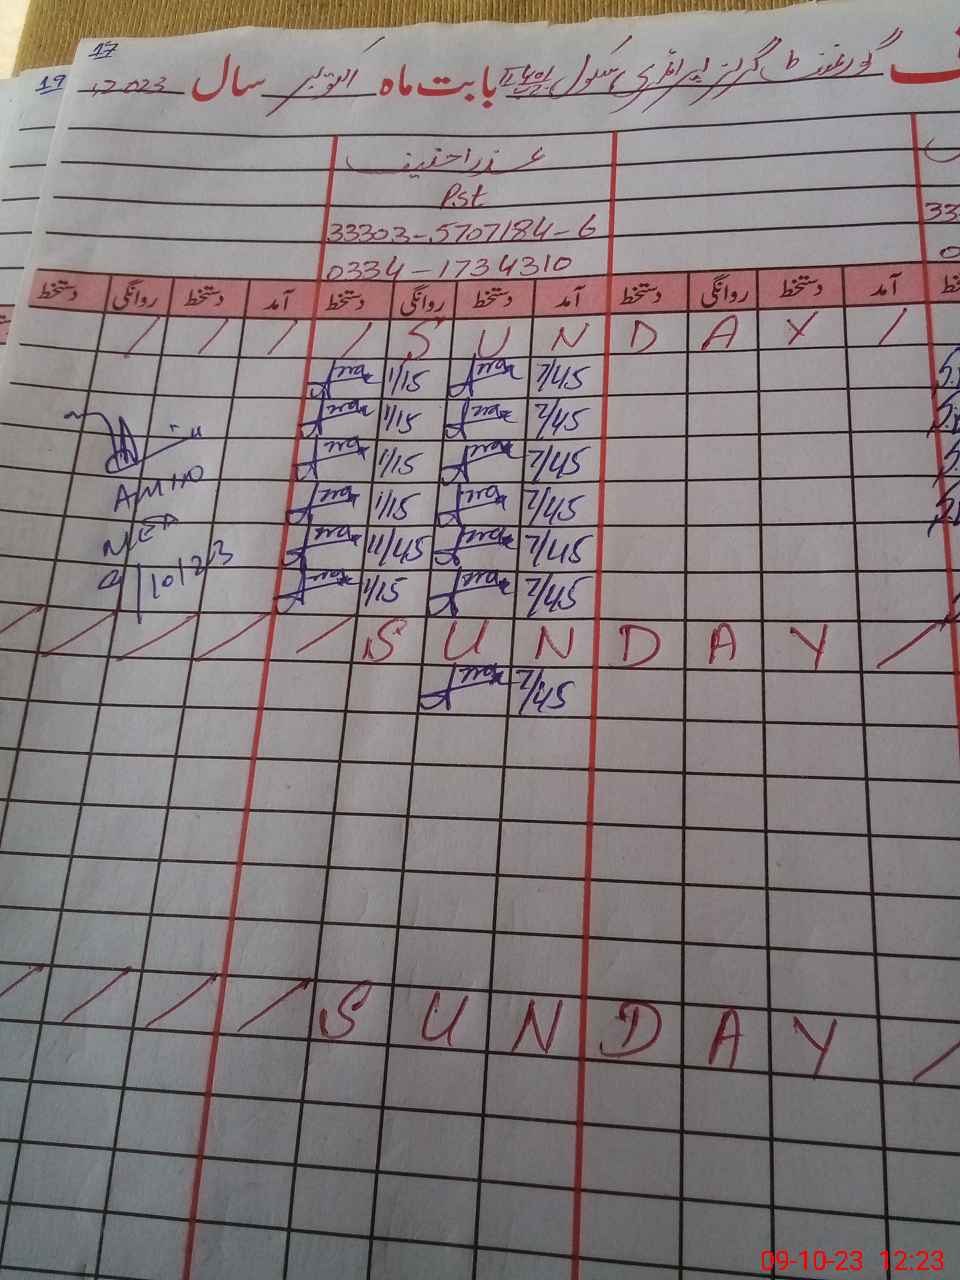 17
19
گورنمنٹ گرلز پرائمری سکول بابت ماہ اکتوبر سال 2023
عذرا حنیف
Pst
33303-5707184-6
33
0334-1734310
0
آمد دستخط روانگی دستخط آمد دستخط روانگی دستخط آمد دستخط روانگی دستخط
/ / / / S U N D A Y /
1/15 7/45
1/15 7/45
1/15 7/45
1/15 7/45
11/45 7/45
1/15 7/45
AMINO
9/10/23
/ / / / / S U N D A Y /
7/45
/ / / / S U N D A Y /
09-10-23 12:23